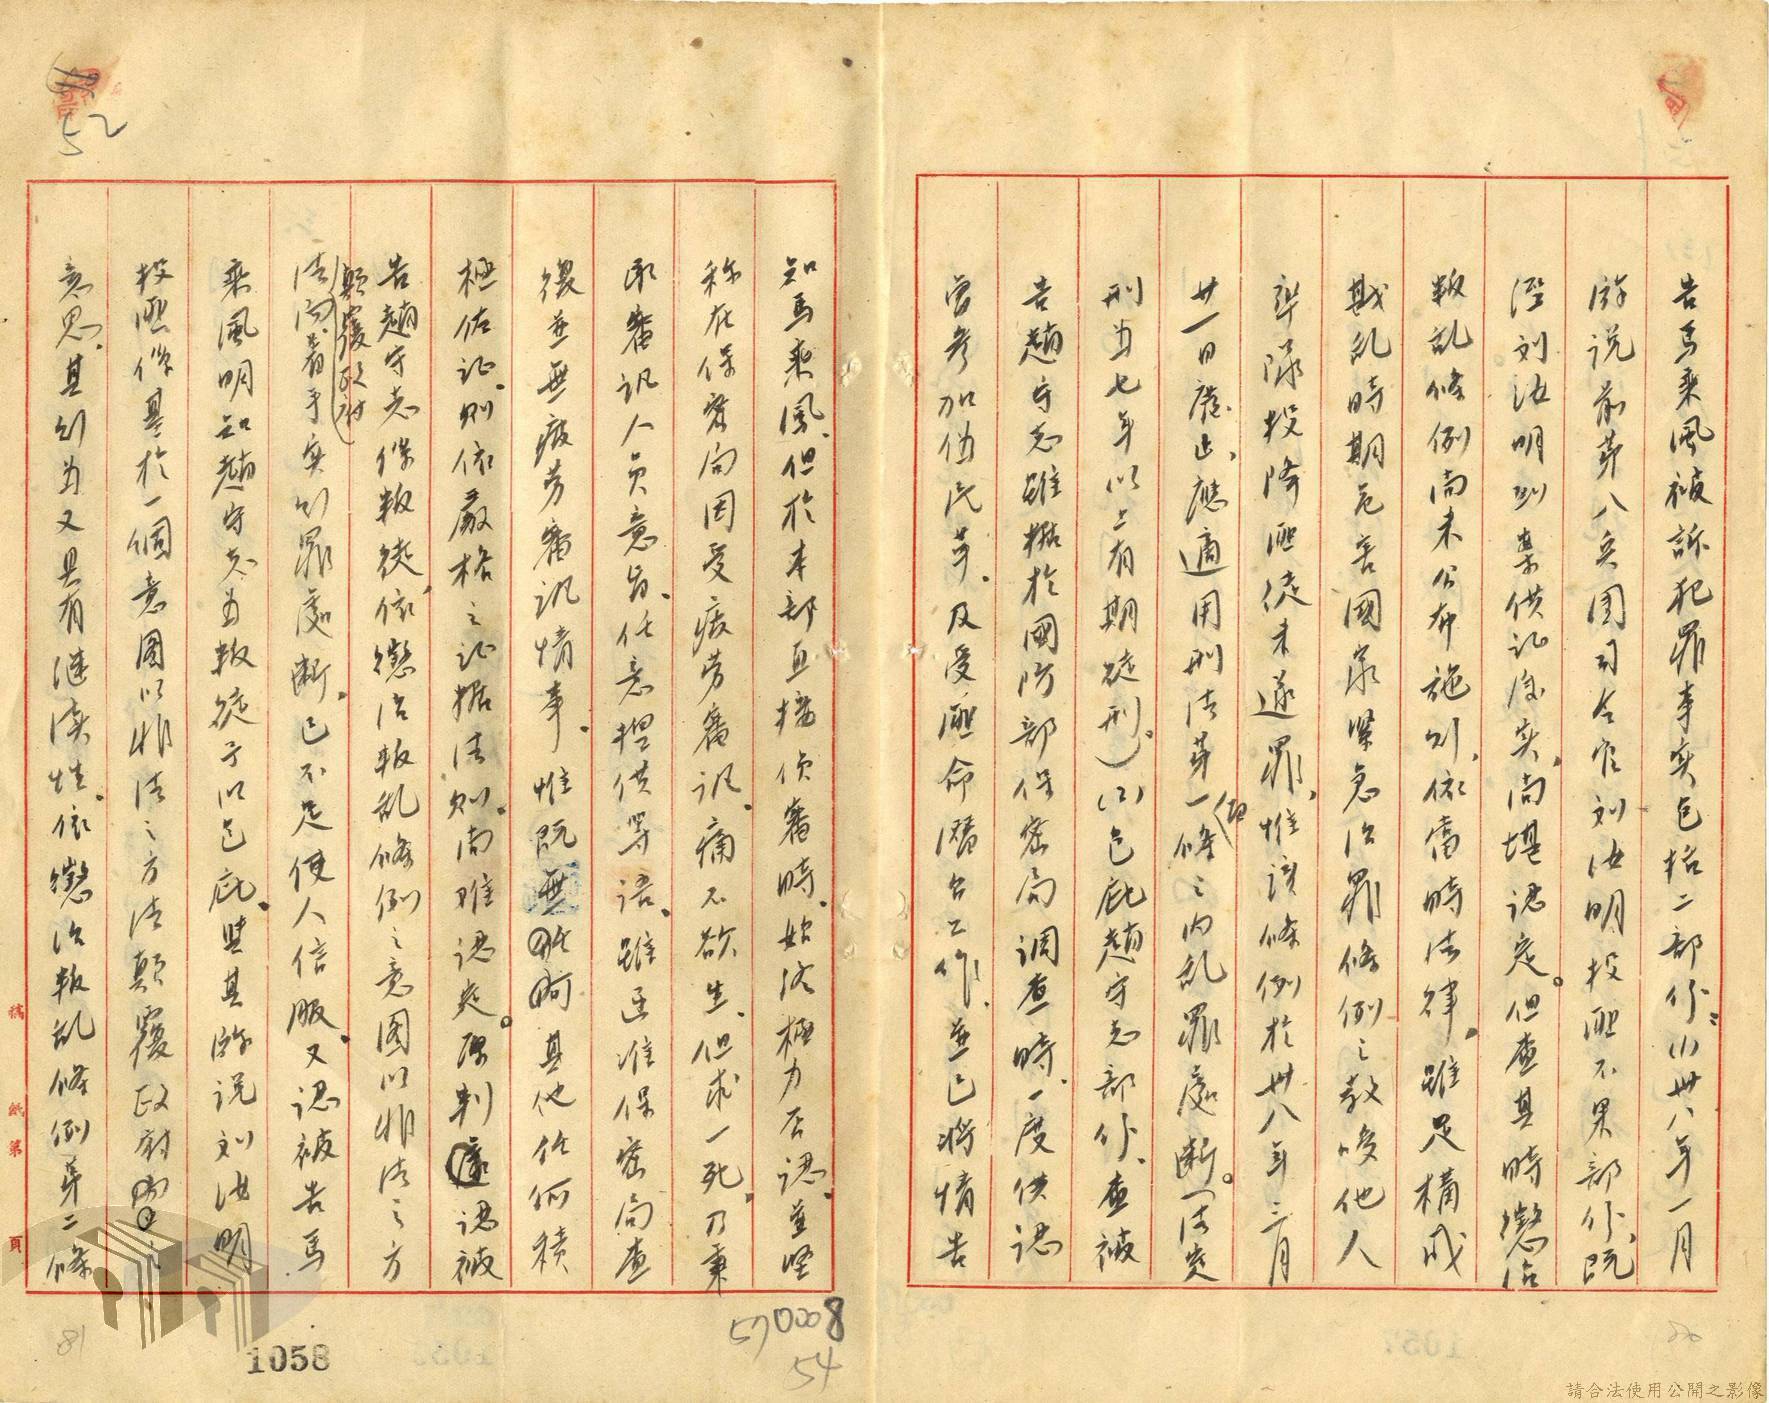 告馬乘風被訴犯罪事实包括二部份：(1)卅八年一月
游说前第八兵团司令官刘汝明投匪不果部份，既
經刘汝明到案供证属实，尚堪認定。但查其時懲治
叛乱條例尚未公布施行，依當時法律，雖足構成
戡乱時期危害國家緊急治罪條例之教唆他人
率隊投降匪徒未遂罪，惟該條例於卅八年三月
廿一日廢止，應適用刑法第一條之内乱罪處断。(法定
刑为七年以上有期徒刑。)(2)包庇趙守志部份，查被
告趙守志雖據於國防部保密局調查時，一度供認
曾参加伪民革，及受匪命潛台工作，並已將情告
知馬乘風，但於本部直接偵審時，始終極力否認，並堅
称在保密局因受疲劳審讯，痛不欲生，但求一死，乃秉
承審讯人员意旨，任意捏供等语，雖迳准保密局查
復並無疲劳審讯情事，惟既無其他任何積
極佐证，则依嚴格之证據法则，尚难認定。原判認被
告趙守志係叛徒，依懲治叛乱條例之意图以非法之方
顛覆政府
法而着手实行罪處断，已不足使人信服，又認被告馬
乘風明知趙守志为叛徒予以包庇，與其游说刘汝明
投匪係基於一個意圖以非法之方法顛覆政府之
意思，其行为又具有連續性，依懲治叛乱條例第二條
52
稿紙第 頁
1058
570008
54
81
請合法使用公開之影像